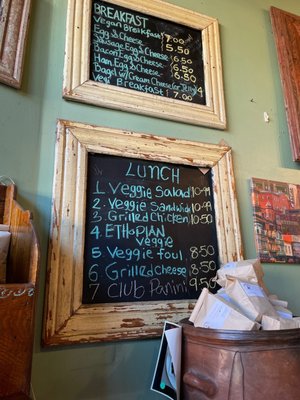 BREAKFAST
Vegan Breakfast 7.00
Egg & Cheese 5.50
Sausage Egg & Cheese 6.50
Bacon Egg & Cheese 6.50
Ham Egg & Cheese 6.50
Bagel w/ Cream Cheese (or Jelly)
Veg. Breakfast 7.00
LUNCH
1 Veggie Salad 10.99
2. Veggie Sandwid 10.99
3 Grilled Chicken 10.50
4 ETHOPIAN
Veggie
5 Veggie foul 8.50
6 Grilled Cheese 8.50
7 Club Panini 9.50